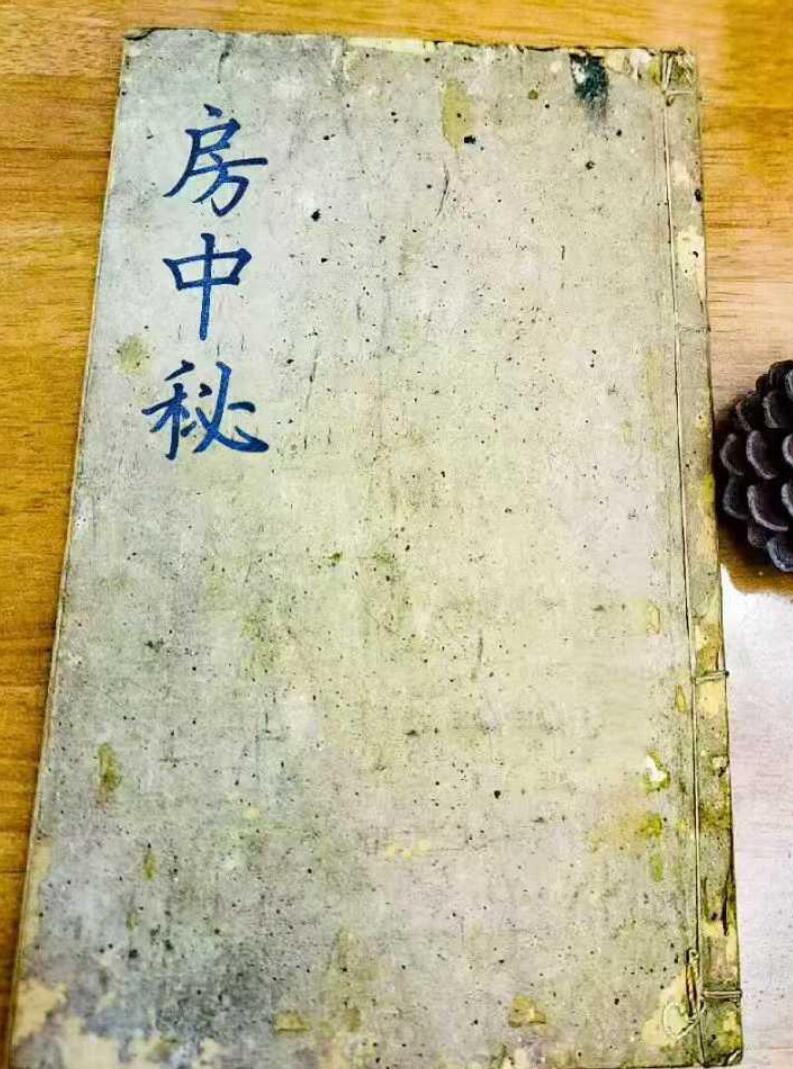 房中秘